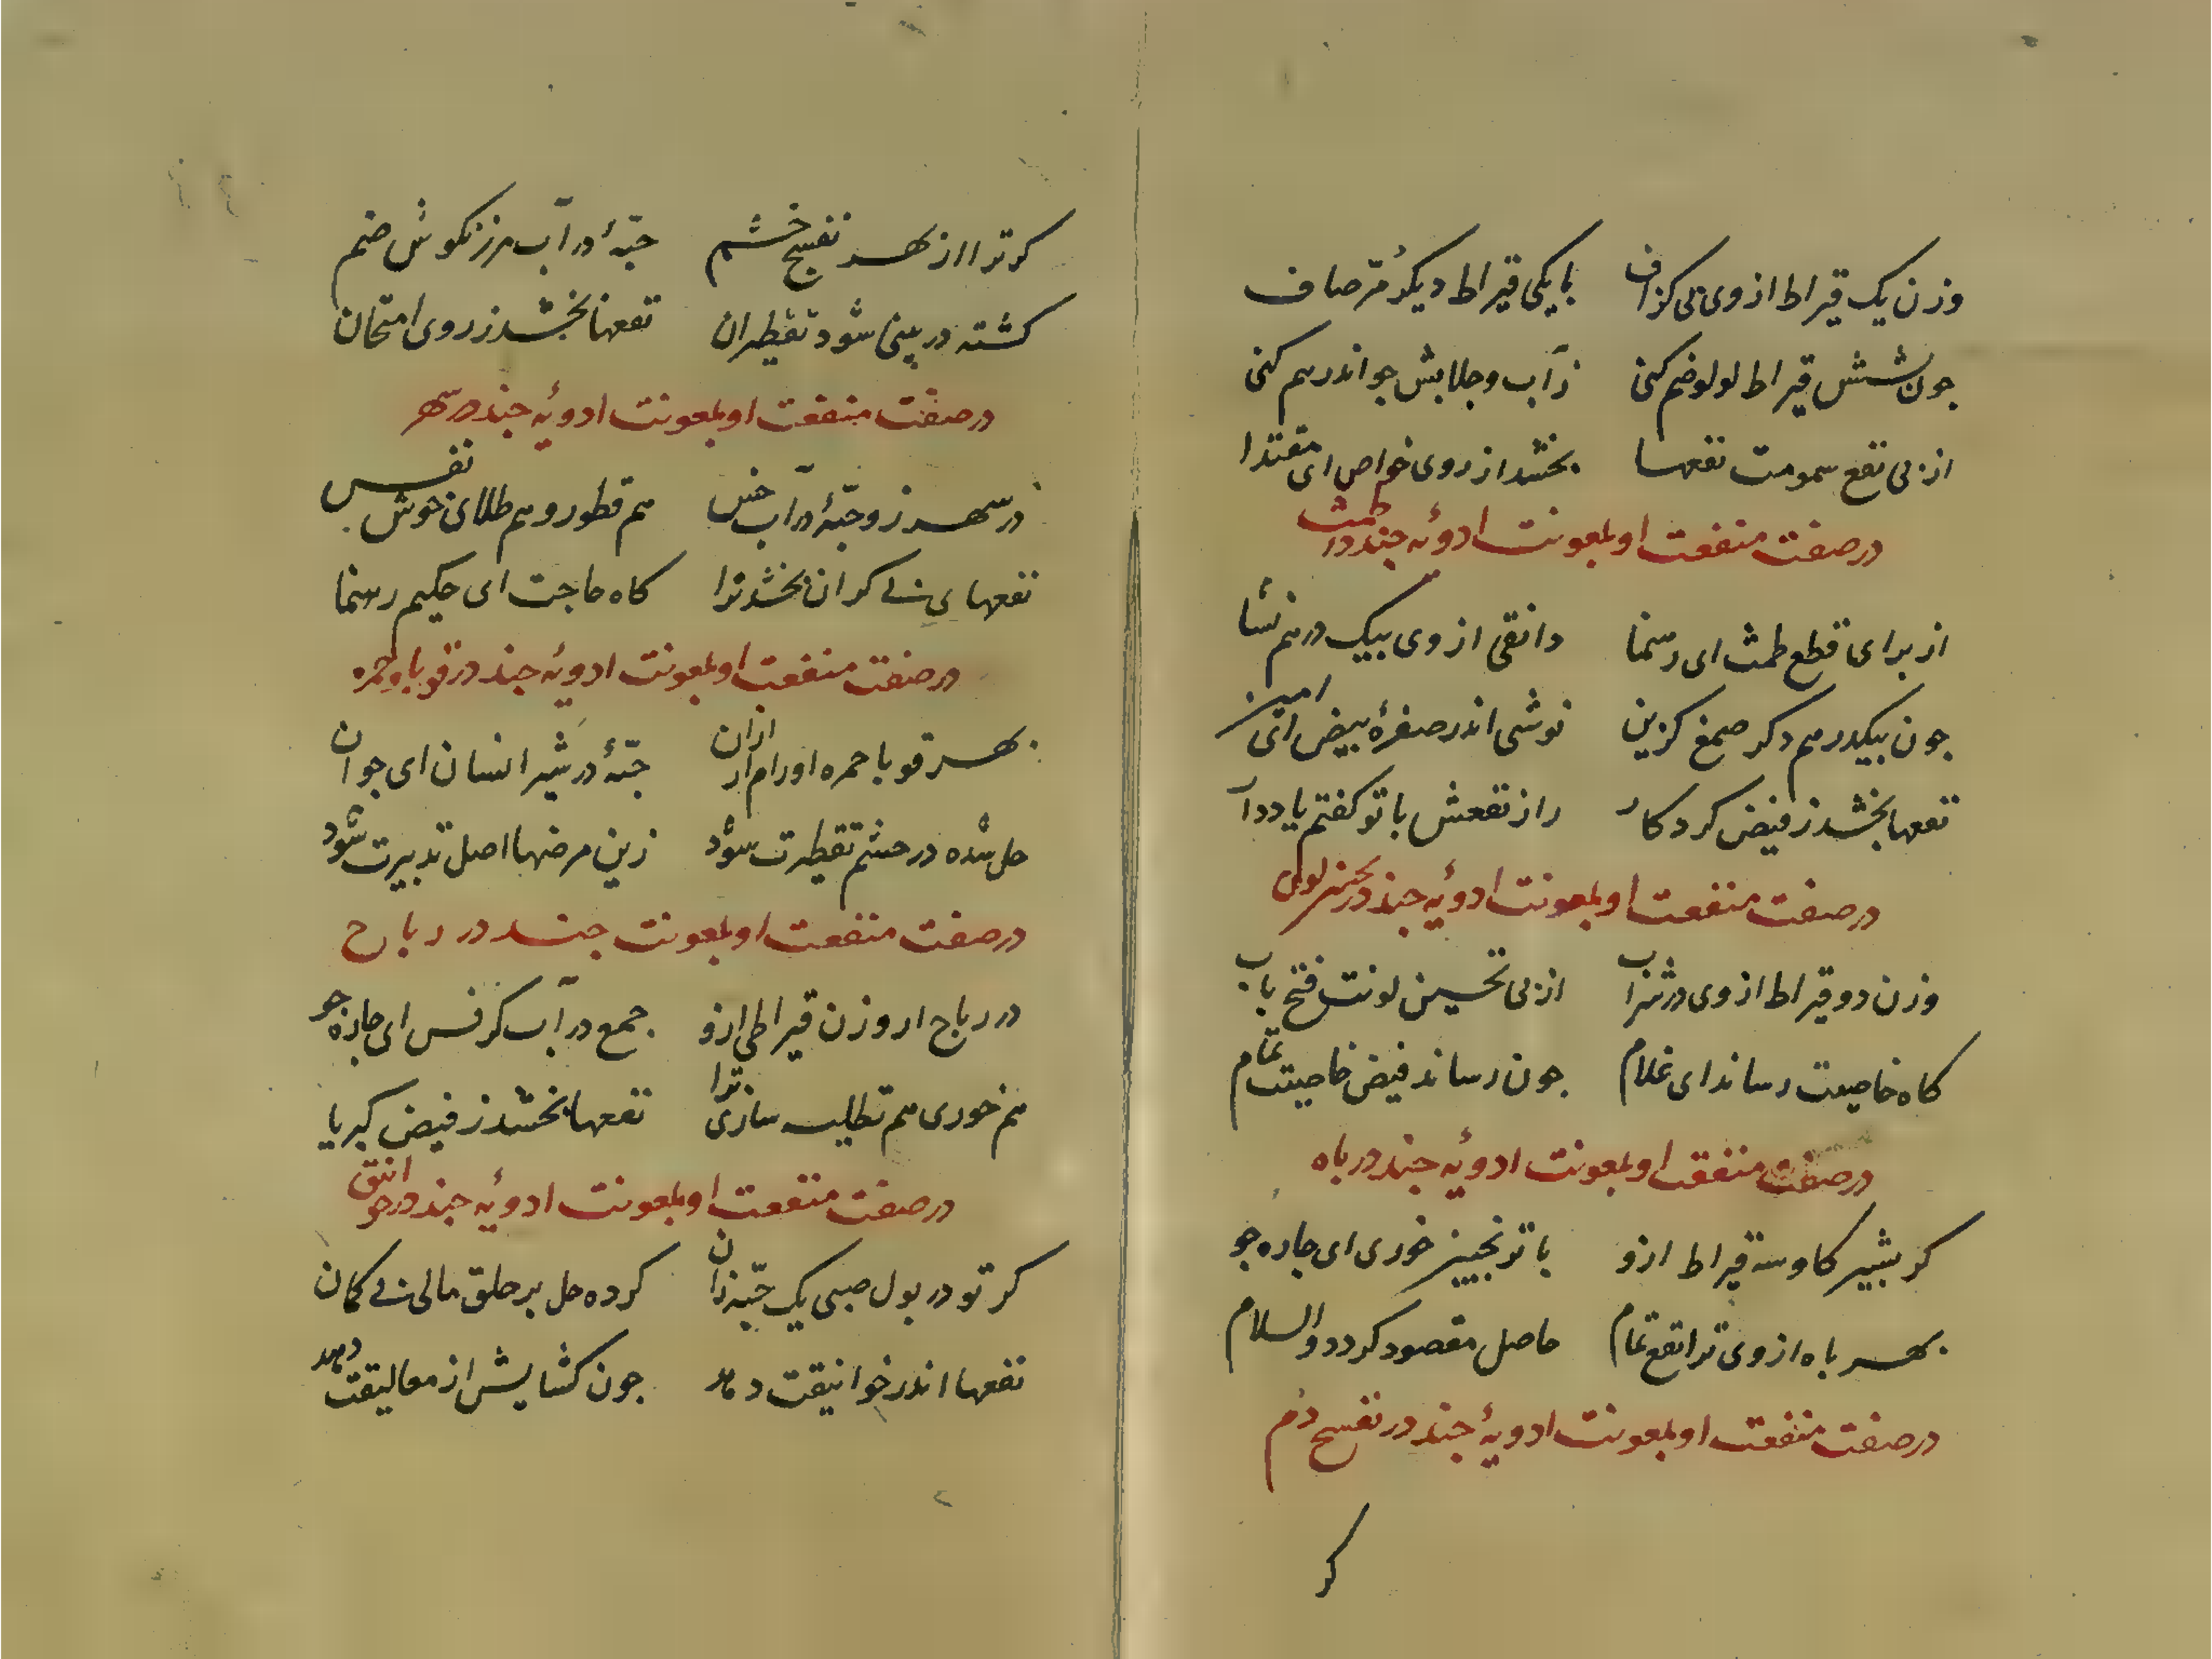 وزن یک قیراط از وی بی کزاف بایکی قیراط دیکر مرّ صاف
جون شش قیراط لولو ضم کنی زآب و جلابش جو اندر هم کنی
از بی نفع سمومت نفعها بخشد از روی خواص ای مقتدا
در صفت منفعت او بمعونت ادویه جند در طمث
از برای قطع طمث ای رهنما دانقی از وی بیک درهم نشا
جون بیکدرهم دکر صمغ کزین نوشی اندر صفرهٔ بیض ای امین
نفعها بخشد ز فیض کردکار راز نفعش با تو کفتم یاد دار
در صفت منفعت او بمعونت ادویه جند در تحسین لون
وزن دو قیراط از وی در شراب از بی تحسین لونت فتح باب
کاه خاصیت رساند ای غلام جون رساند فیض خاصیت تمام
در صفت منفعت او بمعونت ادویه جند در باه
کر بشیر کاو سه قیراط ازو با ترنجبین خوری ای جاره جو
بهر باه از وی ترا نفع تمام حاصل مقصود کردد والسلام
در صفت منفعت او بمعونت ادویهٔ جند در نفسح دم
کر
کر ترا از بهر نفسح خشم حبّهٔ در آب مرزنکوش ضم
کشته در بینی شود تقطیر ان نفعها بخشد ز روی امتحان
در صفت منفعت او بمعونت ادویه جند در سهر
در سهر زو حبّهٔ در آب خس هم قطور و هم طلای خوش نفس
نفعهای بی کران بخشد ترا کاه حاجت ای حکیم رهنما
در صفت منفعت او بمعونت ادویه جند در قوبا و حمره
بهر قوبا حمره اورام ازان حبّهٔ در شیر انسان ای جوان
حل شده در جشم تقطیرت شود زین مرضها اصل تدبیرت شود
در صفت منفعت او بمعونت جند در رباح
در رباح ار وزن قیراطی ازو جمع در آب کرفس ای جاره جو
هم خوری هم تطلیه سازی ترا نفعها بخشد ز فیض کبریا
در صفت منفعت او بمعونت ادویه جند در خوانق
کر تو در بول صبی یک حبّه زان کرده حل بر حلق مالی بی کمان
نفعها اندر خوانیقت دهد جون کشایش از مغالیقت دهد